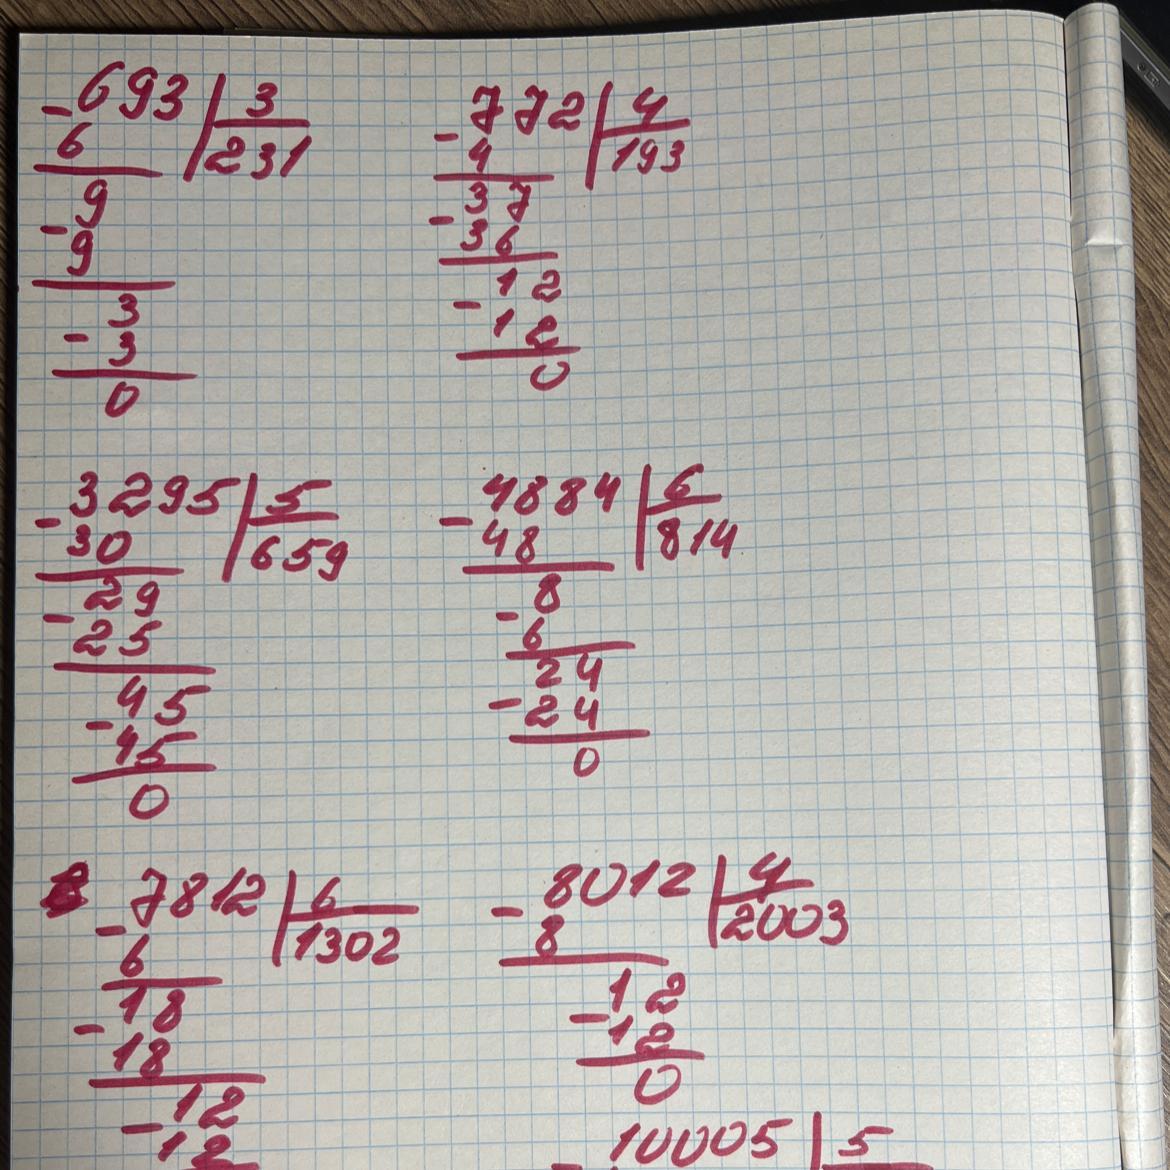 -693 | 3
6 | 231
-9
9
3
-3
0
-772 | 4
4 | 193
-37
36
-12
12
0
-3295 | 5
30 | 659
-29
25
-45
45
0
-4884 | 6
48 | 814
-8
6
24
-24
0
-7812 | 6
6 | 1302
-18
18
-12
12
-8012 | 4
8 | 2003
-12
12
0
-10005 | 5